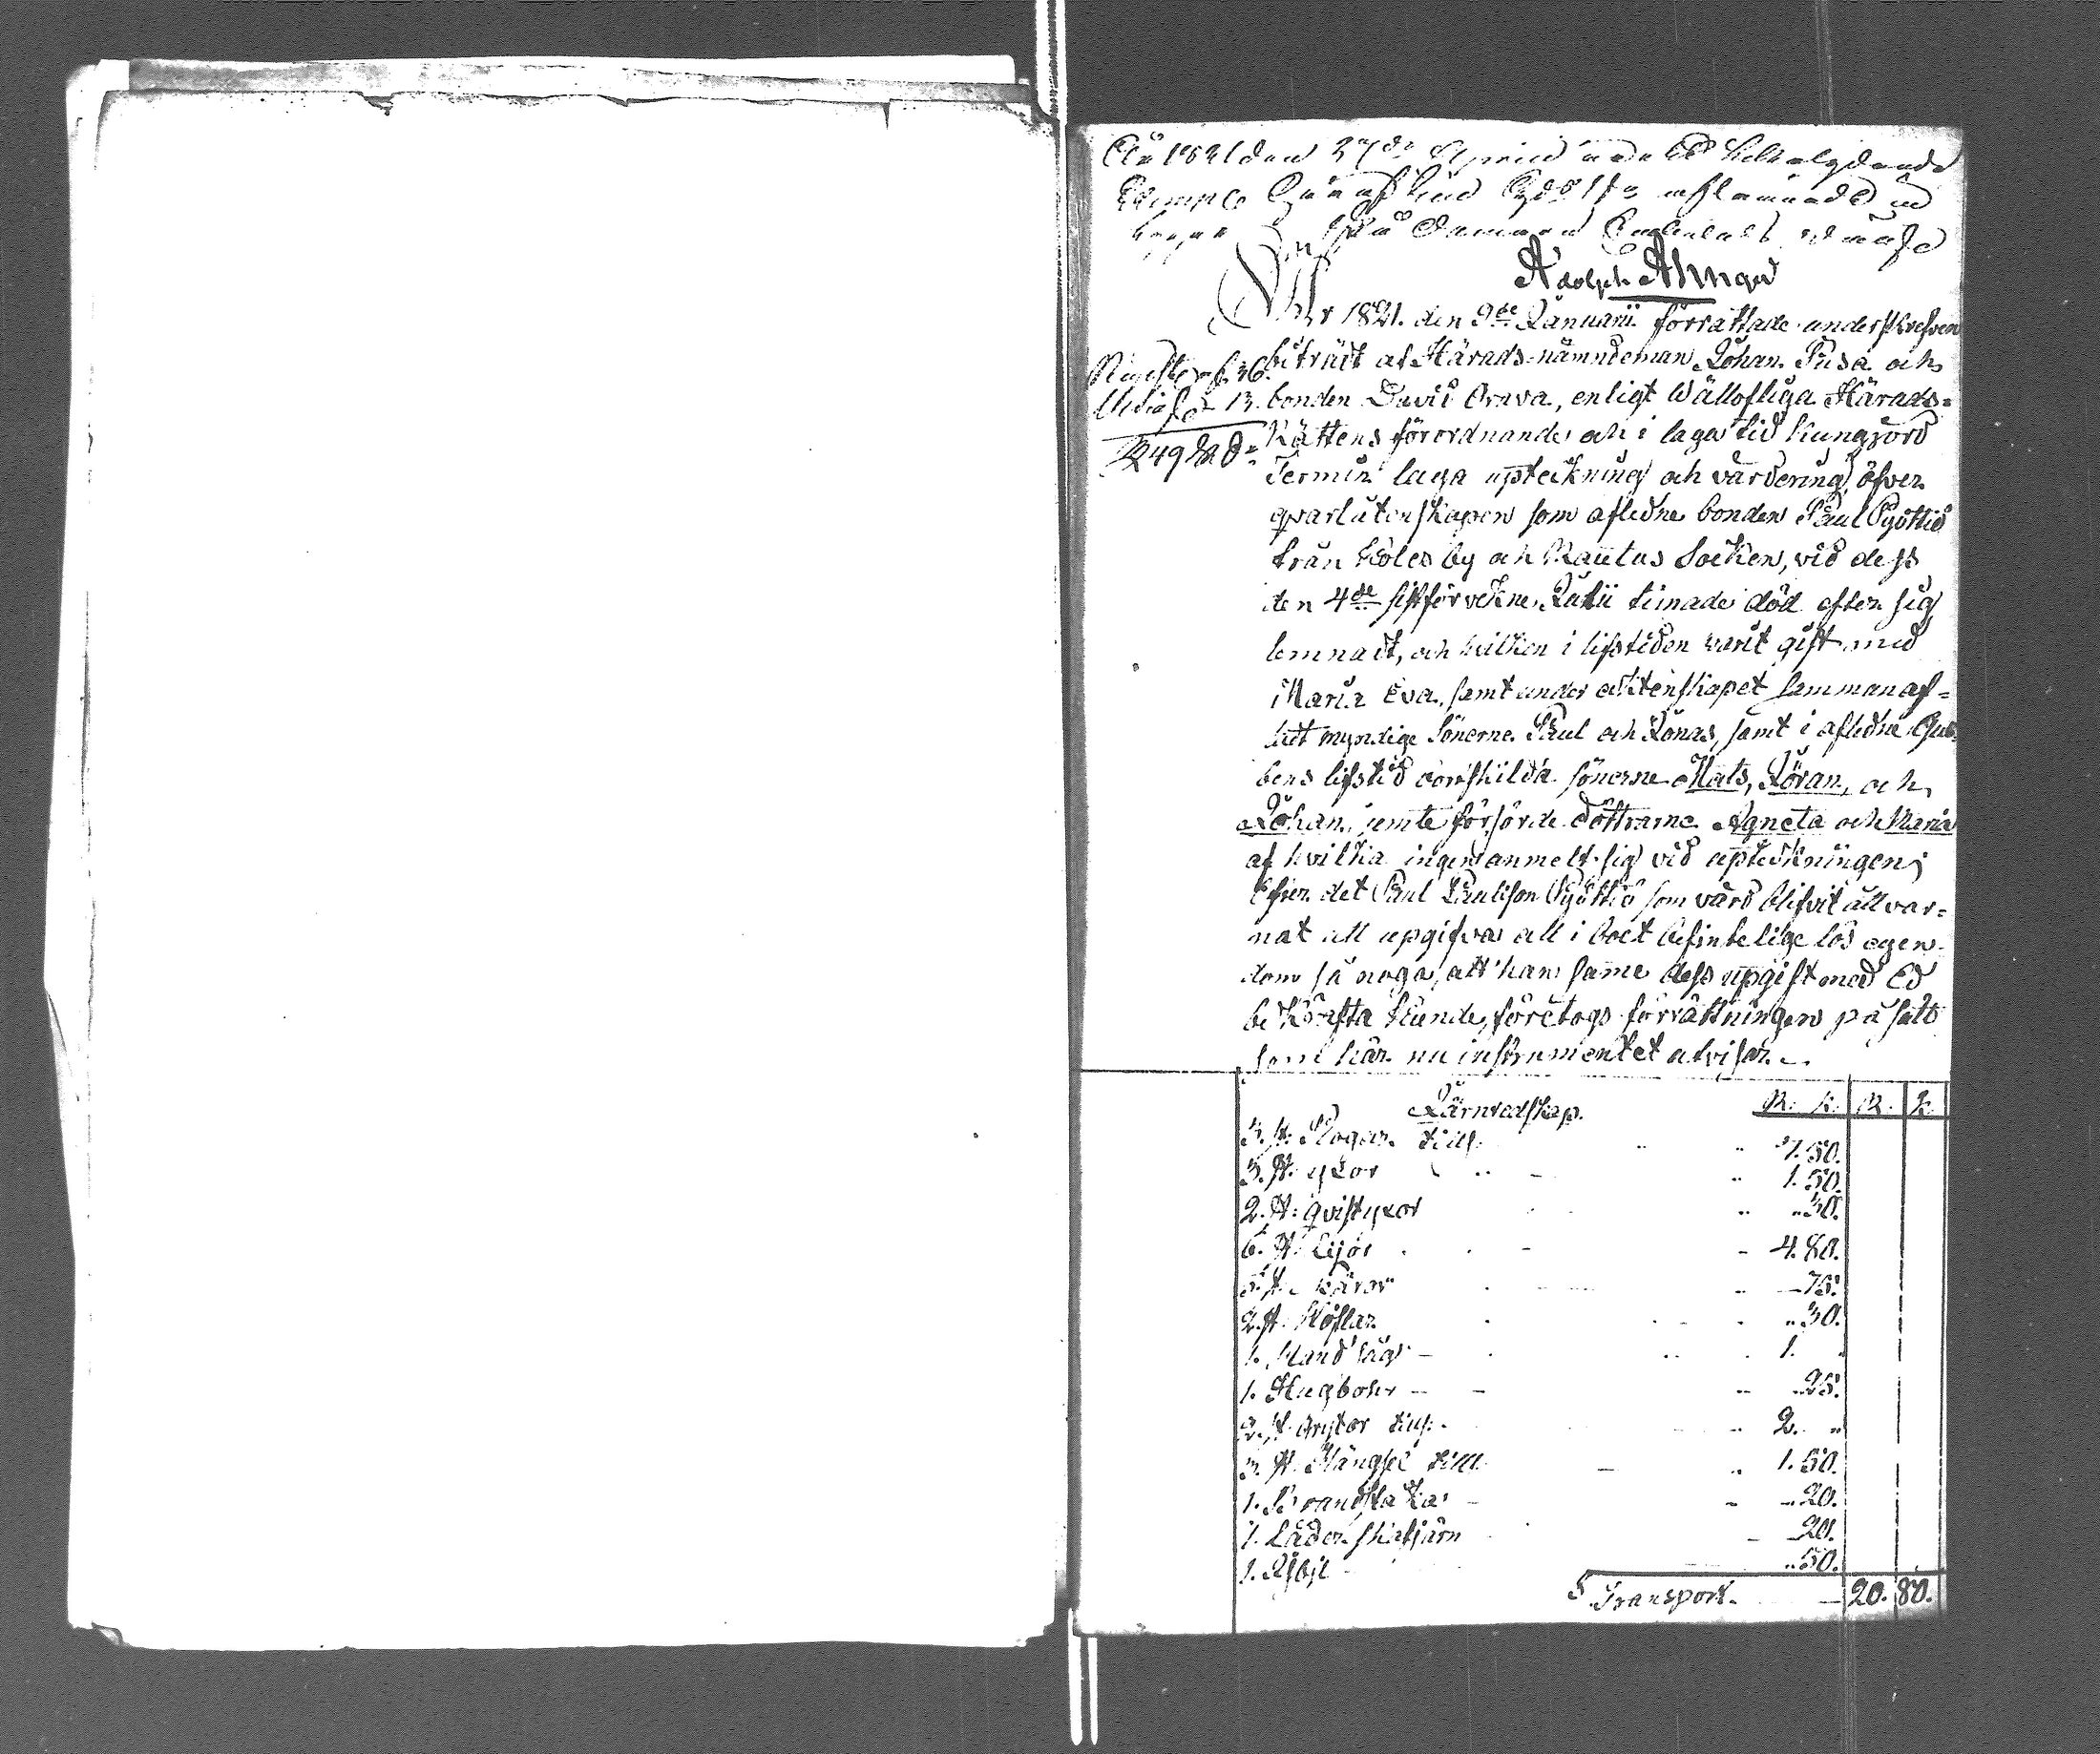 År 1821 den 27de April
Adolph Alinger
År 1821. den 9de Januarii förrättade underskrefven
biträdt af Härads-nämndeman Johan Pusa och
bonden David Orava, enligt Wällofliga Härads-
Rättens förordnande och i laga tid kungjord
Termin laga upteckning och värdering öfver
qvarlåtenskapen som aflidne bonden Paul Pyöttiö
från Koles by och Rautus Socken, vid dess
den 4de sistförvekne Julii timade död efter sig
lemnadt, och hvilken i lifstiden varit gift med
Maria Eva, samt under ächtenskapet samman af-
lat myndige Sönerne Paul och Jonas, samt i aflidne Gub-
bens lifstid correskilda sönerne Mats, Jöran, och
Johan, jemte försörde döttrarne Agneta och Maria
af hvilka ingen anmelt sig vid upteckningen;
Efter det Paul Paulsson Pyöttiö som värd blifvit allvar-
nat att upgifva all i boet befintelige lös egen-
dom så noga, att han samme dess upgift med Ed
bekräfta kunde, företogs förrättningen på sätt
som här nu instrumentet utvisar.
Järnredskap. R. k. R. k.
3. st: Plogar till 7. 50.
3. st: yxor 1. 50.
2. st: qvistyxor 30.
6. st: Lijor 4. 80.
5. st: käror 75.
2. st: Höflar 30.
1. Hand såg 1.
1. Hugbohr 25.
2. st grytor till 2. "
3. st. Hängsel till 1. 50.
1. Brandstaka 20.
1. Läder skafjärn 20.
1. 50.
Transport 20. 80.